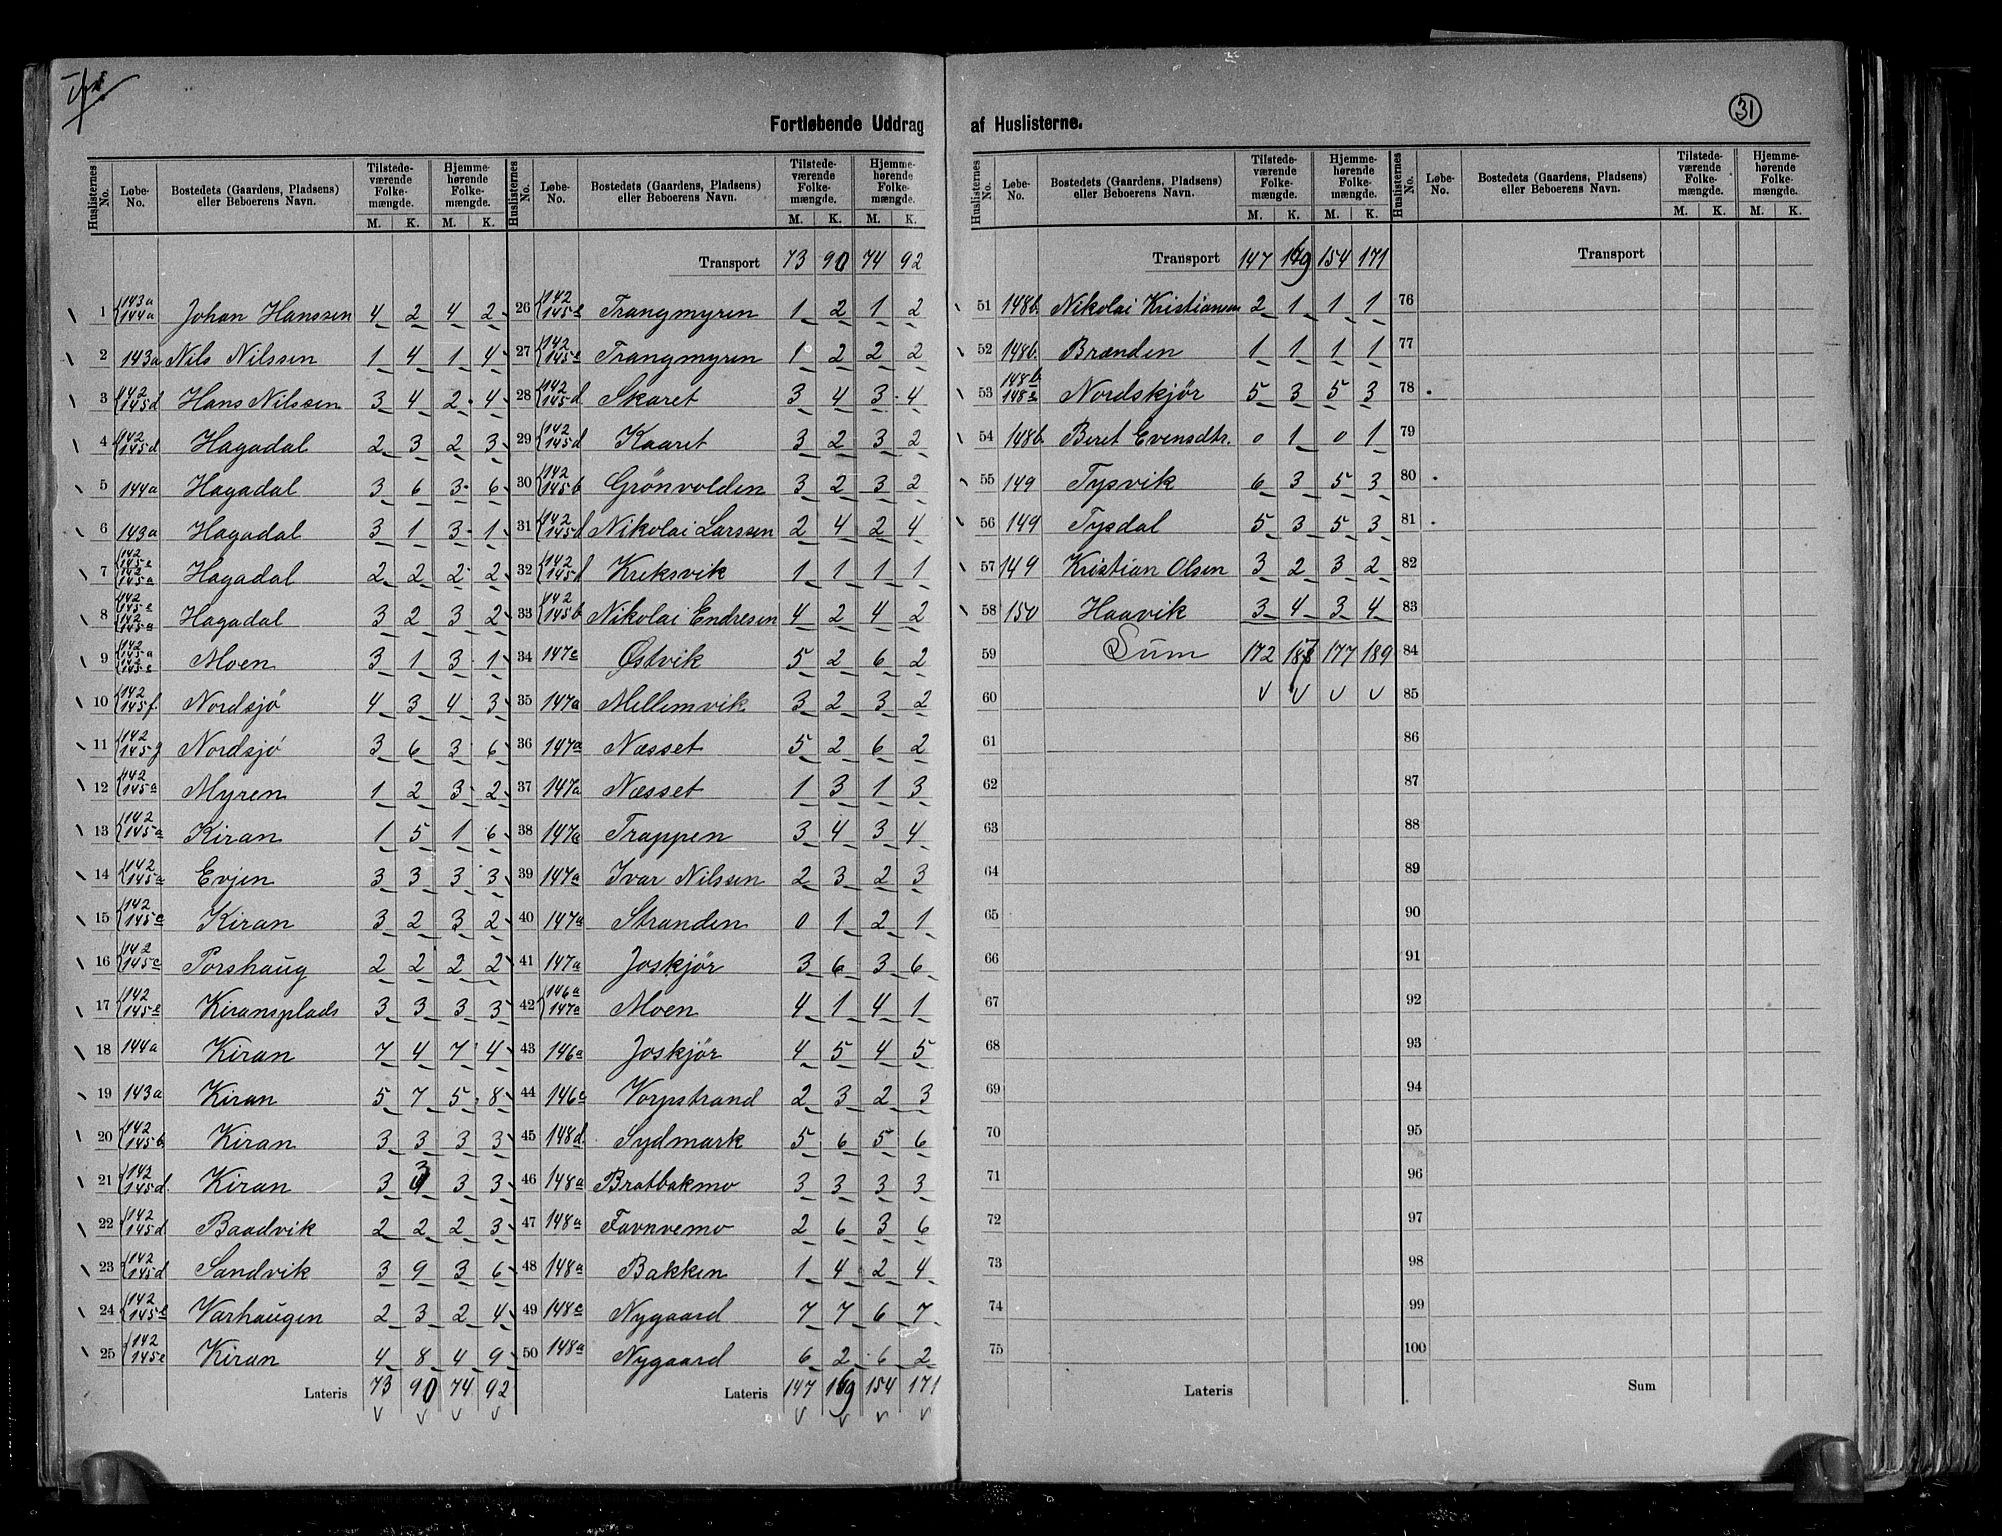 31
Fortløbende Uddrag af Huslisterne.
Huslisternes No. Løbe-No. Bostedets (Gaardens, Pladsens) eller Beboerens Navn. Tilstedeværende Folkemængde. M. K. Hjemmehørende Folkemængde. M. K.
1 143a 144a Johan Hanssen 4 2 4 2
2 143a Nils Nilssen 1 4 1 4
3 142 145d Hans Nilssen 3 4 2 4
4 142 145d Hagadal 2 3 2 3
5 144a Hagadal 3 6 3 6
6 143a Hagadal 3 1 3 1
7 142 145e 142 145a Hagadal 2 2 2 2
8 142 145e 142 145a Hagadal 3 2 3 2
9 142 145a 142 145e Moen 3 1 3 1
10 142 145f Nordsjø 4 3 4 3
11 142 145g Nordsjø 3 6 3 6
12 142 145a Myren 1 2 3 2
13 142 145a Kiran 1 5 1 6
14 142 145a Evjen 3 3 3 3
15 142 145c Kiran 3 2 3 2
16 142 145c Porshaug 2 2 2 2
17 142 145e Kiransplads 3 3 3 3
18 144a Kiran 7 4 7 4
19 143a Kiran 5 7 5 8
20 142 145b Kiran 3 3 3 3
21 142 145d Kiran 3 3 3 3
22 142 145d Baadvik 2 2 2 3
23 142 145d Sandvik 3 9 3 6
24 142 145e Varhaugen 2 3 2 4
25 142 145e Kiran 4 8 4 9
Lateris 73 90 74 92
Huslisternes No. Løbe-No. Bostedets (Gaardens, Pladsens) eller Beboerens Navn. Tilstedeværende Folkemængde. M. K. Hjemmehørende Folkemængde. M. K.
Transport 73 90 74 92
26 142 145e Trangmyren 1 2 1 2
27 142 145e Trangmyren 1 2 2 2
28 142 145d Skaret 3 4 3 4
29 142 145d Kaaret 3 2 3 2
30 142 145b Grönvolden 3 2 3 2
31 142 145d Nikolai Larssen 2 4 2 4
32 142 145d Kreksvik 1 1 1 1
33 142 145b Nikolai Endresen 4 2 4 2
34 147c Østvik 5 2 6 2
35 147a Mellemvik 3 2 3 2
36 147a Næsset 5 2 6 2
37 147a Næsset 1 3 1 3
38 147a Trappen 3 4 3 4
39 147a Ivar Nilssen 2 3 2 3
40 147a Stranden 0 1 2 1
41 147a Joskjør 3 6 3 6
42 146a 147a Moen 4 1 4 1
43 146a Joskjør 4 5 4 5
44 146c Vorpstrand 2 3 2 3
45 148d Sydmark 5 6 5 6
46 148a Bratbakmo 3 3 3 3
47 148a Favnvemo 2 6 3 6
48 148a Bakken 1 4 2 4
49 148c Nygaard 7 7 6 7
50 148a Nygaard 6 2 6 2
Lateris 147 169 154 171
Huslisternes No. Løbe-No. Bostedets (Gaardens, Pladsens) eller Beboerens Navn. Tilstedeværende Folkemængde. M. K. Hjemmehørende Folkemængde. M. K.
Transport 147 169 154 171
51 148b. Nikolai Kristiansen 2 1 1 1
52 148b. Brænden 1 1 1 1
53 148b 148e Nordskjør 5 3 5 3
54 148b Beret Evensdtr. 0 1 0 1
55 149 Tysvik 6 3 5 3
56 149 Tysdal 5 3 5 3
57 149 Kristian Olsen 3 2 3 2
58 150 Haavik 3 4 3 4
59 Sum 172 187 177 189
60
61
62
63
64
65
66
67
68
69
70
71
72
73
74
75
Lateris
Huslisternes No. Løbe-No. Bostedets (Gaardens, Pladsens) eller Beboerens Navn. Tilstedeværende Folkemængde. M. K. Hjemmehørende Folkemængde. M. K.
Transport
76
77
78
79
80
81
82
83
84
85
86
87
88
89
90
91
92
93
94
95
96
97
98
99
100
Sum